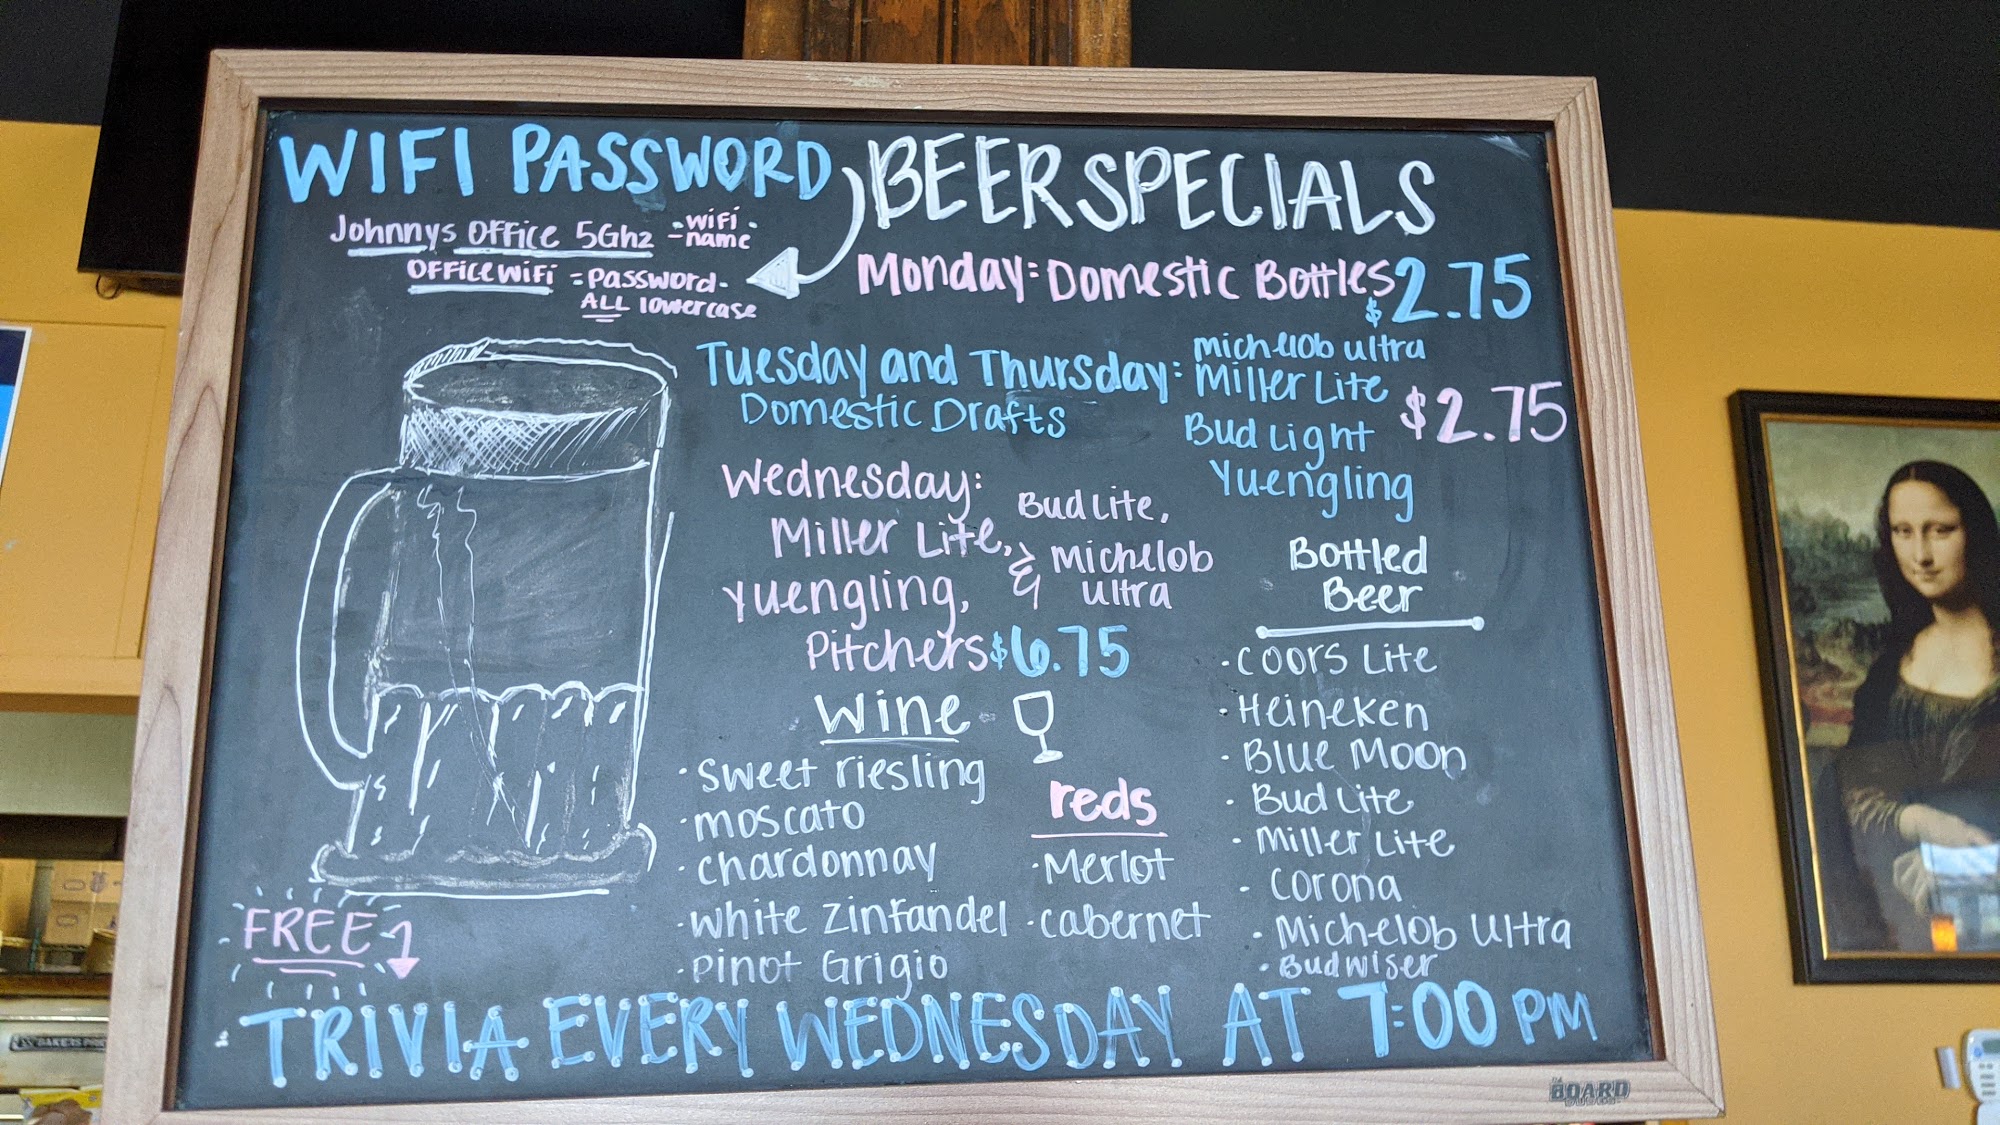 WIFI PASSWORD
Johnnys Office 5Ghz - wifi -
- name
OFFICEWIFI = Password -
ALL lowercase
BEER SPECIALS
Monday: Domestic Bottles $2.75
Tuesday and Thursday:
Domestic Drafts
michelob ultra
Miller Lite
Bud Light
Yuengling
$2.75
Wednesday:
Miller Lite, Bud Lite,
Yuengling, & Michelob
ultra
Pitchers $6.75
Wine
· sweet riesling
· moscato
· chardonnay
· white zinfandel
· pinot Grigio
reds
· Merlot
· cabernet
Bottled
Beer
· COORS Lite
· Heineken
· Blue Moon
· Bud Lite
· Miller Lite
· Corona
· Michelob Ultra
· Budwiser
FREE
TRIVIA EVERY WEDNESDAY AT 7:00 PM
BOARD
DUDES